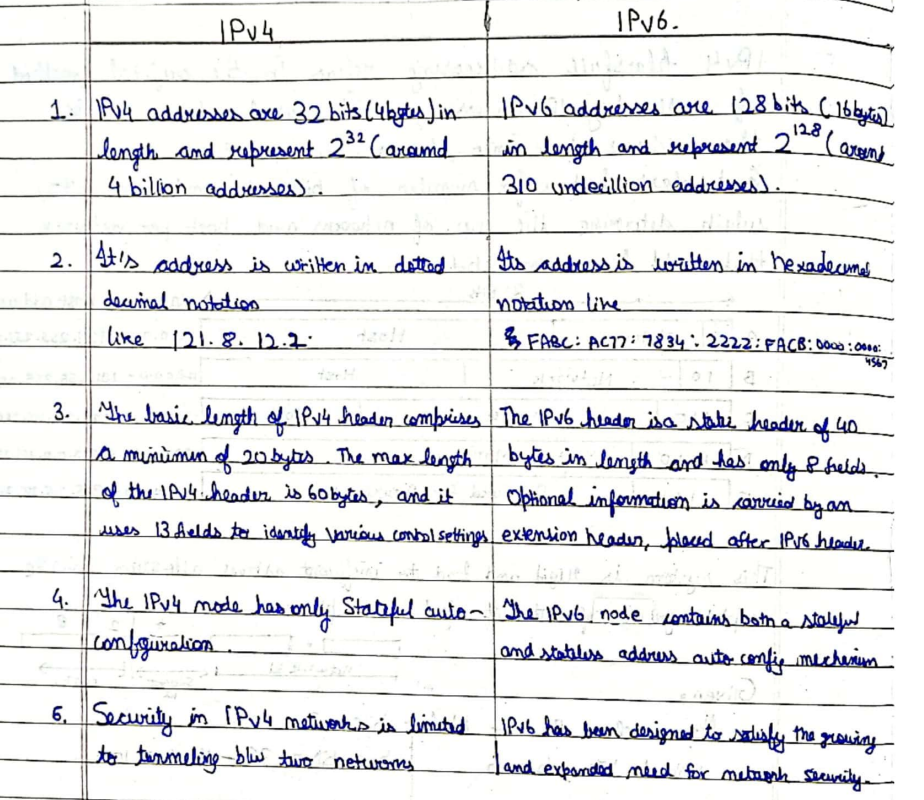 IPv4
IPv6.
1. IPv4 addresses are 32 bits (4bytes) in
length and represent 2^32 (around
4 billion addresses).
IPv6 addresses are 128 bits (16bytes)
in length and represent 2^128 (around
310 undecillion addresses).
2. It's address is written in dotted
decimal notation
like 121. 8. 12.2.
Its address is written in hexadecimal
notation like
FABC: AC77: 7834: 2222: FACB: 0000: 0000:
4567
3. The basic length of IPv4 header comprises
a minimum of 20 bytes. The max length
of the IPv4 header is 60 bytes, and it
uses 13 fields to identify various control settings
The IPv6 header is a static header of 40
bytes in length and has only 8 fields.
Optional information is carried by an
extension header, placed after IPv6 header.
4. The IPv4 node has only Stateful auto-
configuration.
The IPv6 node contains both a stateful
and stateless address auto config mechanism
5. Security in IPv4 networks is limited
to tunneling b/w two networks
IPv6 has been designed to satisfy the growing
and expanded need for network security.